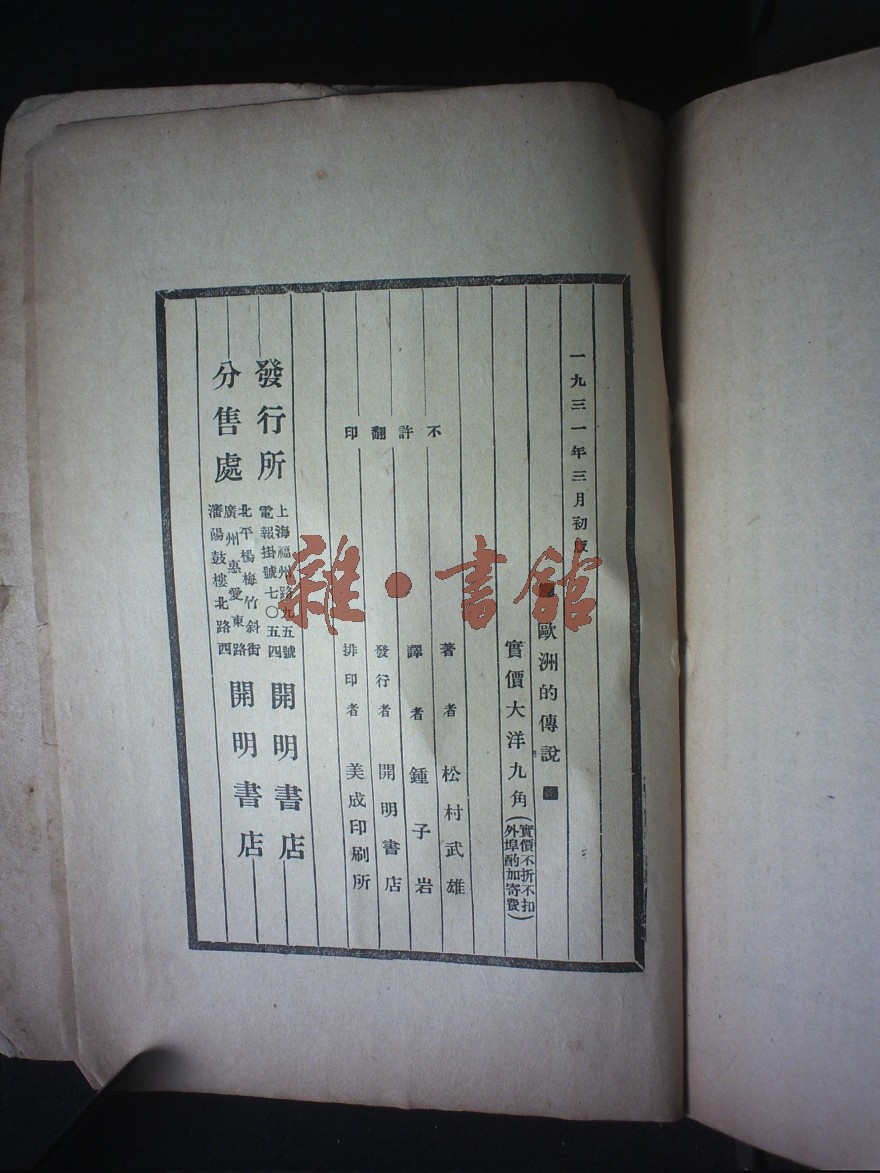 一九三一年三月初版
歐洲的傳說
實價大洋九角
(實價不折不扣
外埠酌加寄費)
著者 松村武雄
譯者 鍾子岩
發行者 開明書店
排印者 美成印刷所
不許翻印
發行所
上海福州路九五號
電報掛號七〇五四
開明書店
分售處
北平楊梅竹斜街
廣州惠愛東路
瀋陽鼓樓北路西
開明書店
雜·書館